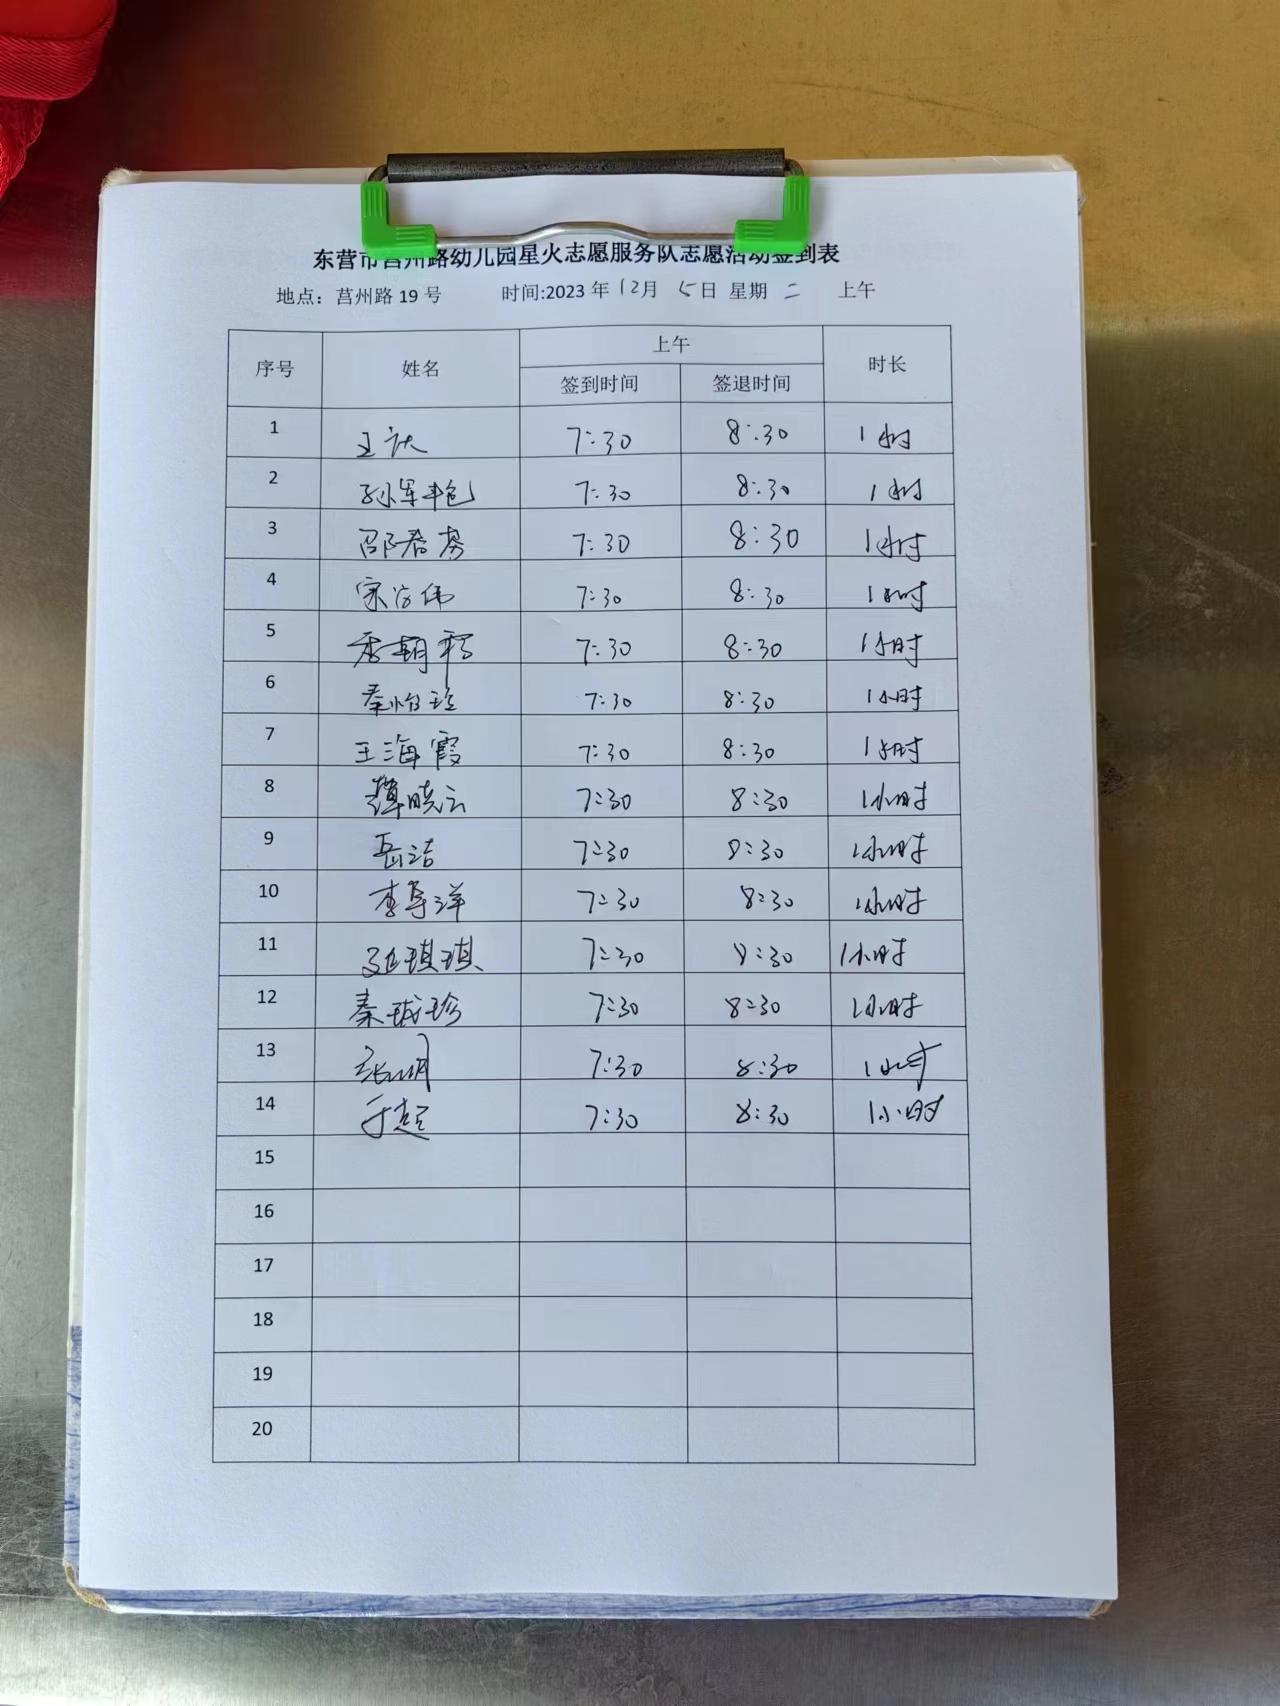 东营市莒州路幼儿园星火志愿服务队志愿活动签到表
地点：莒州路 19 号 时间:2023 年 12月 5日 星期 二 上午
序号 姓名 上午 时长
签到时间 签退时间
1 王 7:30 8:30 1小时
2 孙军艳 7:30 8:30 1小时
3 邵春 7:30 8:30 1小时
4 宋 伟 7:30 8:30 1小时
5 7:30 8:30 1小时
6 秦怡 7:30 8:30 1小时
7 王海霞 7:30 8:30 1小时
8 谭晓云 7:30 8:30 1小时
9 岳洁 7:30 8:30 1小时
10 李 洋 7:30 8:30 1小时
11 琪琪 7:30 8:30 1小时
12 秦 珍 7:30 8:30 1小时
13 张明 7:30 8:30 1小时
14 于超 7:30 8:30 1小时
15
16
17
18
19
20